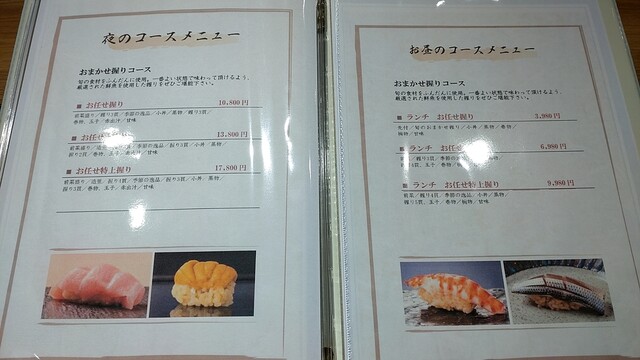 夜のコースメニュー
おまかせ握りコース
旬の食材をふんだんに使用。一番よい状態で味わって頂けるよう、
厳選された鮮魚を使用した握りをぜひご堪能下さい。
■ お任せ握り 10,800円
前菜盛り／握り3貫／季節の逸品／小丼／蒸物／握り3貫／
巻物、玉子／赤出汁／甘味
■ お任せ 握り 13,800円
前菜盛り／造里／握り3貫／季節の逸品／握り3貫／小丼／蒸物／
握り2貫／巻物、玉子／赤出汁／甘味
■ お任せ特上握り 17,800円
前菜盛り／造里／握り4貫／季節の逸品／握り3貫／小丼、蒸物／
握り3貫／巻物、玉子／赤出汁／甘味
お昼のコースメニュー
おまかせ握りコース
旬の食材をふんだんに使用。一番よい状態で味わって頂けるよう、
厳選された鮮魚を使用した握りをぜひご堪能下さい。
■ ランチ お任せ握り 3,980円
先付／旬のおまかせ握り／小丼／蒸物／巻物／
椀物／甘味
■ ランチ 握り 6,980円
巻物／椀物／甘味
■ ランチ お任せ特上握り 9,980円
前菜／握り4貫／季節の逸品／小丼／蒸物／
握り5貫、玉子／巻物／椀物／甘味